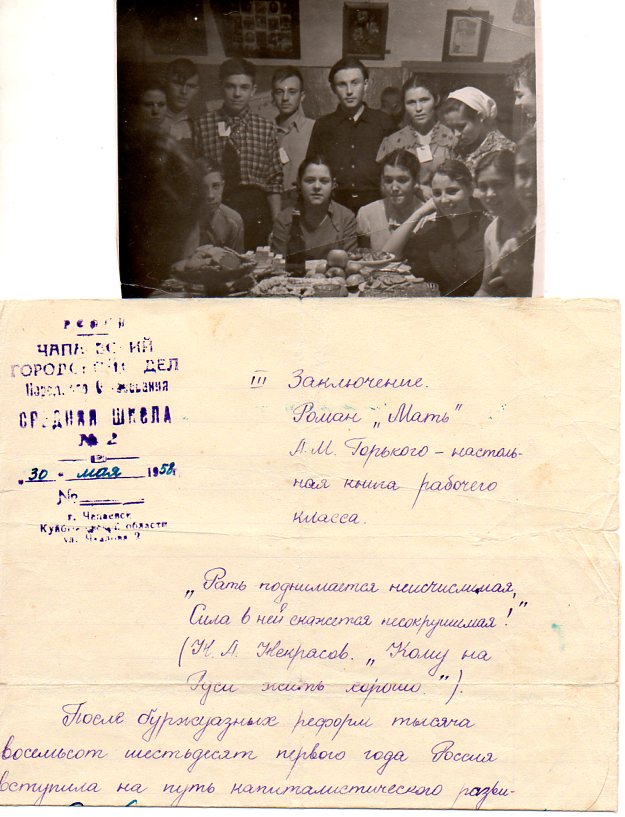 РСФСР
ЧАПАЕВСКИЙ
ГОРОДСКОЙ ОТДЕЛ
Народного Образования
СРЕДНЯЯ ШКОЛА
№ 2
„30 - мая 1958г.
№
г. Чапаевск
Куйбышевской области
ул. Чкалова 2
III Заключение.
Роман „Мать"
А.М. Горького – настоль-
ная книга рабочего
класса.
„Рать поднимается неисчислимая,
Сила в ней скажется несокрушимая!"
(Н. А. Некрасов. „Кому на
Руси жить хорошо.").
После буржуазных реформ тысяча
восемьсот шестьдесят первого года Россия
вступила на путь капиталистического разви-